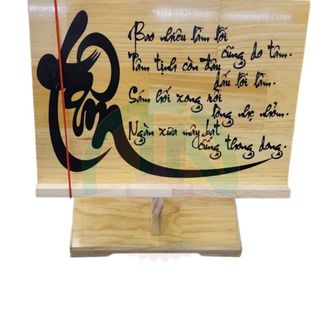 Tâm
Bao nhiêu lầm lỗi
cũng do tâm.
Tâm tịnh còn đâu
dấu lỗi lầm.
Sám hối xong rồi
lòng nhẹ nhỏm.
Ngàn xưa mây bạt
cũng thong dong.